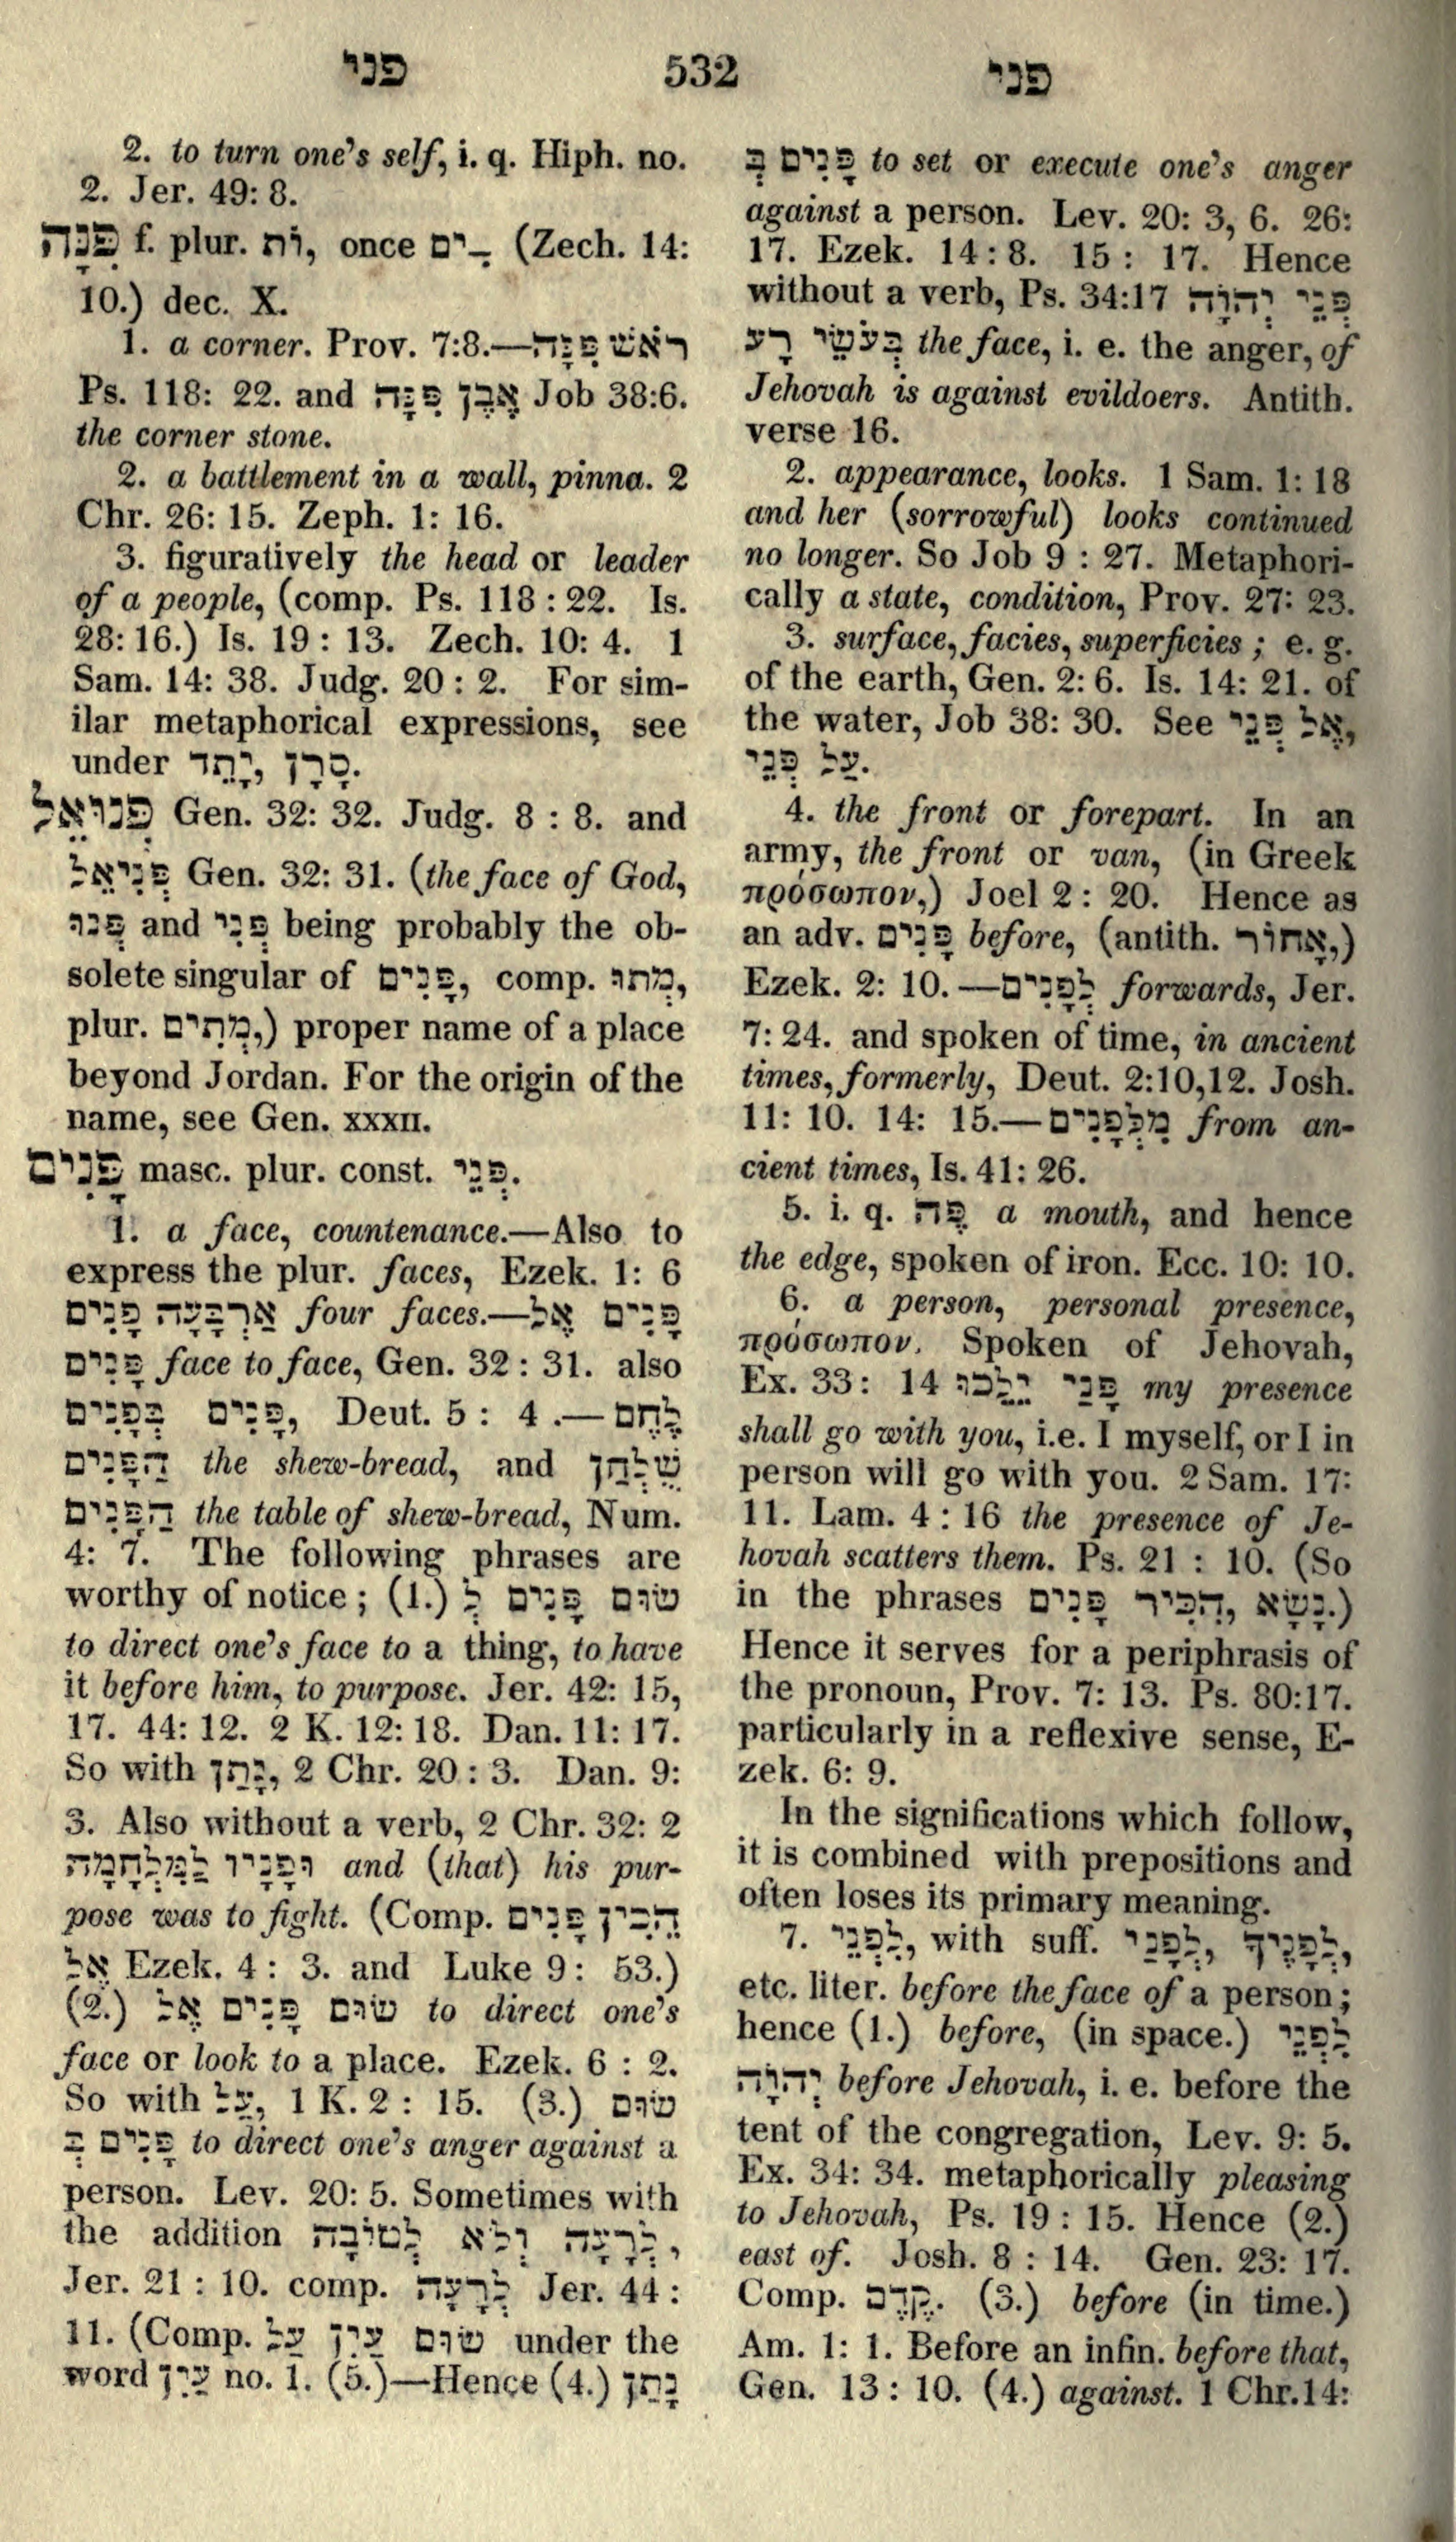 פני 532 פני
2. to turn one's self, i. q. Hiph. no.
2. Jer. 49: 8.
פִּנָּה f. plur. וֹת, once ־ִים (Zech. 14:
10.) dec. X.
1. a corner. Prov. 7:8.—רֹאשׁ פִּנָּה
Ps. 118: 22. and אֶבֶן פִּנָּה Job 38:6.
the corner stone.
2. a battlement in a wall, pinna. 2
Chr. 26: 15. Zeph. 1: 16.
3. figuratively the head or leader
of a people, (comp. Ps. 118 : 22. Is.
28: 16.) Is. 19 : 13. Zech. 10: 4. 1
Sam. 14: 38. Judg. 20 : 2. For sim-
ilar metaphorical expressions, see
under יָתֵד, סָרָן.
פְּנוּאֵל Gen. 32: 32. Judg. 8 : 8. and
פְּנִיאֵל Gen. 32: 31. (the face of God,
פְּנוּ and פְּנִי being probably the ob-
solete singular of פָּנִים, comp. מְתוּ,
plur. מְתִים,) proper name of a place
beyond Jordan. For the origin of the
name, see Gen. XXXII.
פָּנִים masc. plur. const. פְּנֵי.
1. a face, countenance.—Also to
express the plur. faces, Ezek. 1: 6
אַרְבָּעָה פָנִים four faces.—פָּנִים אֶל
פָּנִים face to face, Gen. 32 : 31. also
פָּנִים בְּפָנִים, Deut. 5 : 4 .—לֶחֶם
הַפָּנִים the shew-bread, and שֻׁלְחַן
הַפָּנִים the table of shew-bread, Num.
4: 7. The following phrases are
worthy of notice ; (1.) שׂוּם פָּנִים לְ
to direct one's face to a thing, to have
it before him, to purpose. Jer. 42: 15,
17. 44: 12. 2 K. 12: 18. Dan. 11: 17.
So with נָתַן, 2 Chr. 20 : 3. Dan. 9:
3. Also without a verb, 2 Chr. 32: 2
וּפָנָיו לַמִּלְחָמָה and (that) his pur-
pose was to fight. (Comp. הֵכִין פָּנִים
אֶל Ezek. 4 : 3. and Luke 9 : 53.)
(2.) שׂוּם פָּנִים אֶל to direct one's
face or look to a place. Ezek. 6 : 2.
So with עַל, 1 K. 2 : 15. (3.) שׂוּם
פָּנִים בְּ to direct one's anger against a
person. Lev. 20: 5. Sometimes with
the addition לְרָעָה וְלֹא לְטוֹבָה,
Jer. 21 : 10. comp. לְרָעָה Jer. 44 :
11. (Comp. שׂוּם עַיִן עַל under the
word עַיִן no. 1. (5.)—Hence (4.) נָתַן
פָּנִים בְּ to set or execute one's anger
against a person. Lev. 20: 3, 6. 26:
17. Ezek. 14 : 8. 15 : 17. Hence
without a verb, Ps. 34:17 פְּנֵי יְהוָֹה
בְּעֹשֵׂי רָע the face, i. e. the anger, of
Jehovah is against evildoers. Antith.
verse 16.
2. appearance, looks. 1 Sam. 1: 18
and her (sorrowful) looks continued
no longer. So Job 9 : 27. Metaphori-
cally a state, condition, Prov. 27: 23.
3. surface, facies, superficies ; e. g.
of the earth, Gen. 2: 6. Is. 14: 21. of
the water, Job 38: 30. See אֶל פְּנֵי,
עַל פְּנֵי.
4. the front or forepart. In an
army, the front or van, (in Greek
πρόσωπον,) Joel 2 : 20. Hence as
an adv. פָּנִים before, (antith. אָחוֹר,)
Ezek. 2: 10.—לְפָנִים forwards, Jer.
7: 24. and spoken of time, in ancient
times, formerly, Deut. 2:10,12. Josh.
11: 10. 14: 15.—מִלְּפָנִים from an-
cient times, Is. 41: 26.
5. i. q. פֶּה a mouth, and hence
the edge, spoken of iron. Ecc. 10: 10.
6. a person, personal presence,
πρόσωπον. Spoken of Jehovah,
Ex. 33: 14 פָּנַי יֵלֵכוּ my presence
shall go with you, i.e. I myself, or I in
person will go with you. 2 Sam. 17:
11. Lam. 4 : 16 the presence of Je-
hovah scatters them. Ps. 21 : 10. (So
in the phrases הִכִּיר פָּנִים, נָשָׂא.)
Hence it serves for a periphrasis of
the pronoun, Prov. 7: 13. Ps. 80:17.
particularly in a reflexive sense, E-
zek. 6: 9.
In the significations which follow,
it is combined with prepositions and
often loses its primary meaning.
7. לִפְנֵי, with suff. לְפָנַי, לְפָנֶיךָ,
etc. liter. before the face of a person;
hence (1.) before, (in space.) לִפְנֵי
יְהוָֹה before Jehovah, i. e. before the
tent of the congregation, Lev. 9: 5.
Ex. 34: 34. metaphorically pleasing
to Jehovah, Ps. 19 : 15. Hence (2.)
east of. Josh. 8 : 14. Gen. 23: 17.
Comp. קֶדֶם. (3.) before (in time.)
Am. 1: 1. Before an infin. before that,
Gen. 13 : 10. (4.) against. 1 Chr.14: